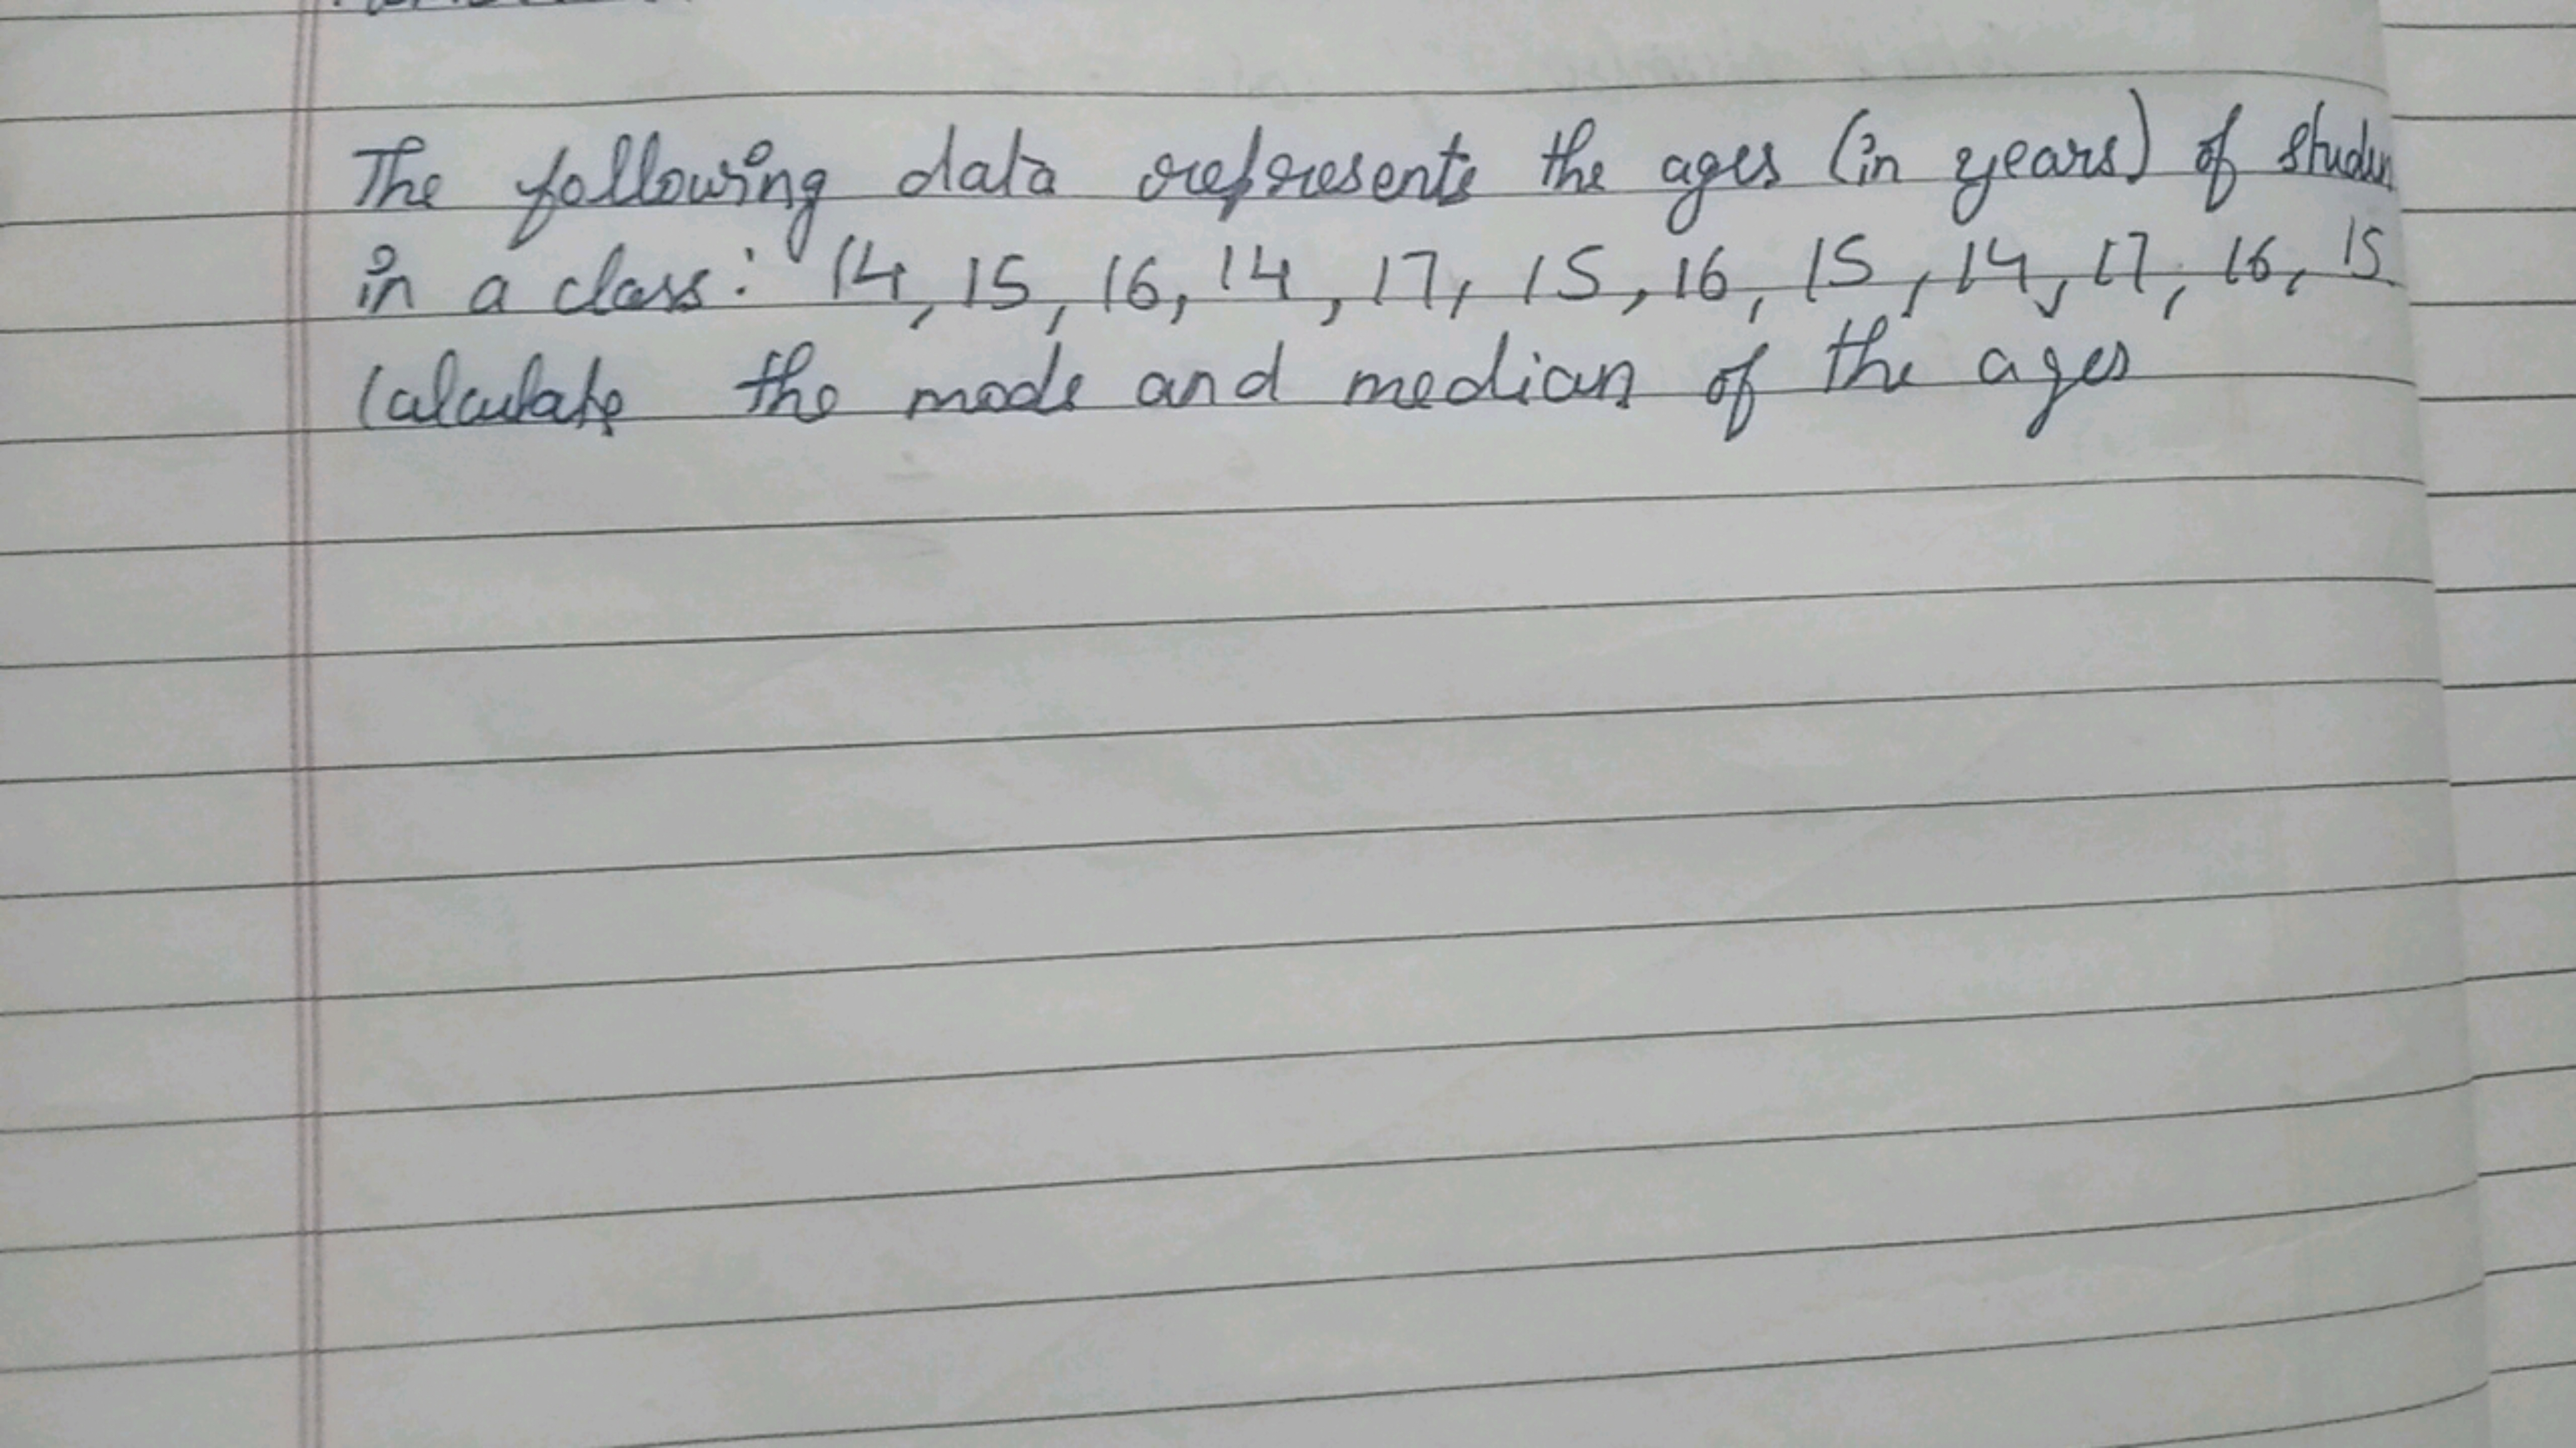 The following data represents the ages (in years) of studen
in a class: 14, 15, 16, 14, 17, 15, 16, 15, 14, 17, 16, 15
Calculate the mode and median of the ages